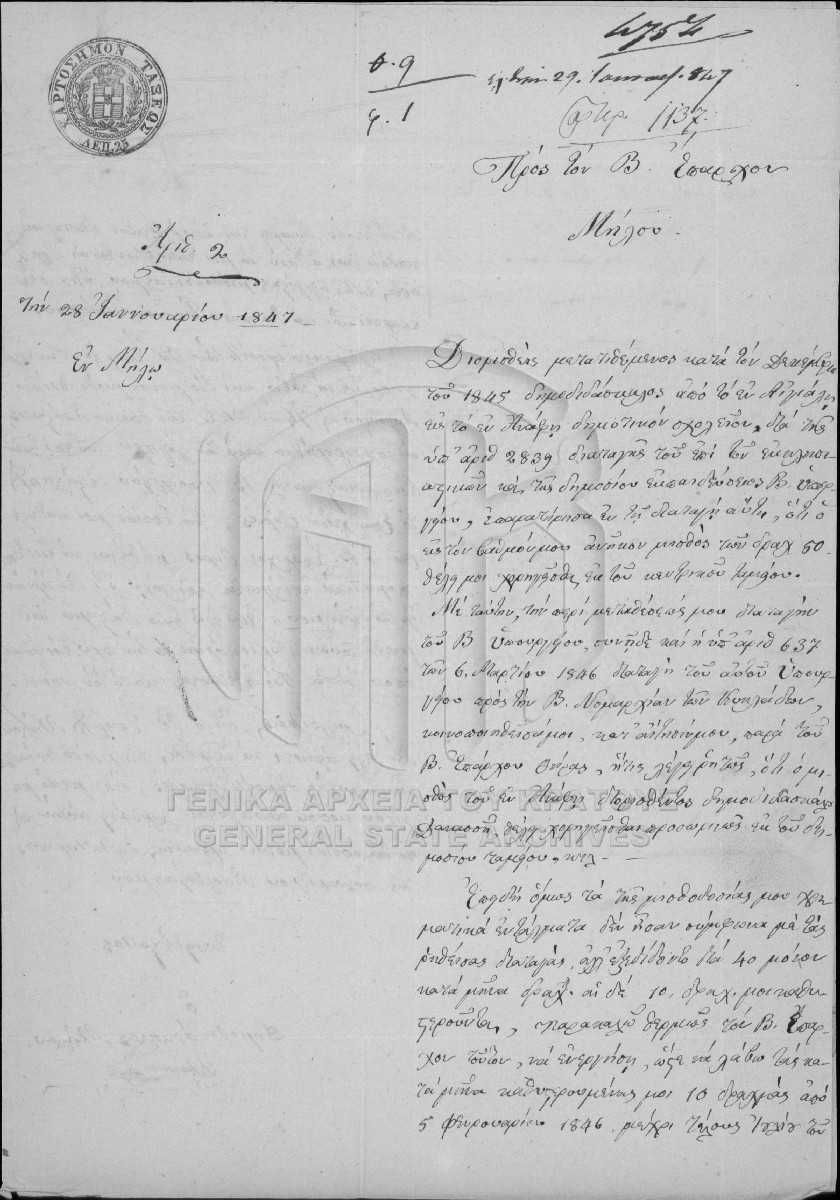 ΧΑΡΤΟΣΗΜΟΝ ΤΑΞΕΩΣ
ΛΕΠ. 25
4754
θ. 9
φ. 1
τὴν 29 Ἰανουαρ. 847
πρ. 1137
Πρὸς τὸν Β. Ἔπαρχον
Μήλου.
Ἀριθ. 2
τὴν 28 Ἰαννουαρίου 1847
Ἐν Μήλῳ
Διορισθεὶς μετατιθέμενος κατὰ τὸν Δεκέμβριον
τοῦ 1845 δημοδιδάσκαλος ἀπὸ τὸ ἐν Αἰγιάλῃ
εἰς τὸ ἐν Ἀνάφῃ δημοτικὸν σχολεῖον, διὰ τῆς
ὑπ' ἀριθ 2839 διαταγῆς τοῦ ἐπὶ τῶν ἐκκλησι-
αστικῶν καὶ τῆς δημοσίου ἐκπαιδεύσεως Β. Ὑπουρ-
γείου, ἐπαρατήρησα ἐν τῇ διαταγῇ αὐτῇ, ὅτι ὁ
εἰς τὸν βαθμόν μου ἀνήκων μισθὸς τῶν δραχ 50
θέλει μοὶ χορηγεῖσθαι ἐκ τοῦ κεντρικοῦ ταμείου.
Μὲ ταύτην, τὴν περὶ μεταθέσεώς μου διαταγὴν
τοῦ Β Ὑπουργείου, συνῆδε καὶ ἡ ὑπ' ἀριθ 637
τῶν 6 Μαρτίου 1846 διαταγὴ τοῦ αὐτοῦ Ὑπουρ-
γείου πρὸς τὴν Β. Νομαρχίαν τῶν Κυκλάδων,
κοινοποιηθεῖσά μοι, κατ' αἴτησίν μου, παρὰ τοῦ
Β. Ἐπάρχου Θήρας, ἥτις λέγει ῥητῶς, ὅτι ὁ μι-
σθὸς τοῦ ἐν Ἀνάφῃ διορισθέντος δημοδιδασκάλου
θέλει χορηγεῖσθαι προσωρινῶς ἐκ τοῦ δη-
μοσίου ταμείου, κτλ -
Ἐπειδὴ ὅμως τὰ τῆς μισθοδοσίας μου χρη-
ματικὰ ἐντάλματα δὲν ἦσαν σύμφωνα μὲ τὰς
ῥηθείσας διαταγὰς, ἀλλ' ἐξεδίδοντο διὰ 40 μόνον
κατὰ μῆνα δραχ. αἱ δὲ 10 δραχ. μοὶ καθυ-
στεροῦνται, παρακαλῶ θερμῶς τὸν Β. Ἔπαρ-
χον τοῦτον, νὰ ἐνεργήσῃ, ὥστε νὰ λάβω τὰς κα-
τὰ μῆνα καθυστερουμένας μοι 10 δραχμὰς ἀπὸ
5 Φεβρουαρίου 1846 μέχρι τέλους Ἰουλίου τοῦ
ΓΕΝΙΚΑ ΑΡΧΕΙΑ ΤΟΥ ΚΡΑΤΟΥΣ
GENERAL STATE ARCHIVES